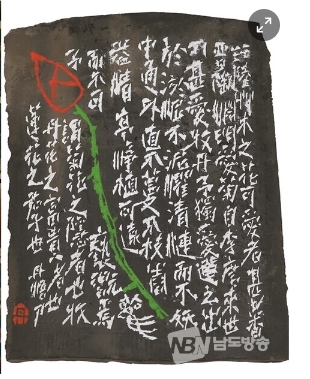 陸艸木之花可愛者甚蕃
淵明獨愛菊自李唐來世
人甚愛牧丹予獨愛蓮之出
於淤泥不 濯清漣而不妖
中通外直不蔓不枝
益清亭 淨植可遠
不可 褻翫焉
予謂菊花之隱 者也牧
丹花之富貴者也
蓮花之君子也
NBN 남도방송